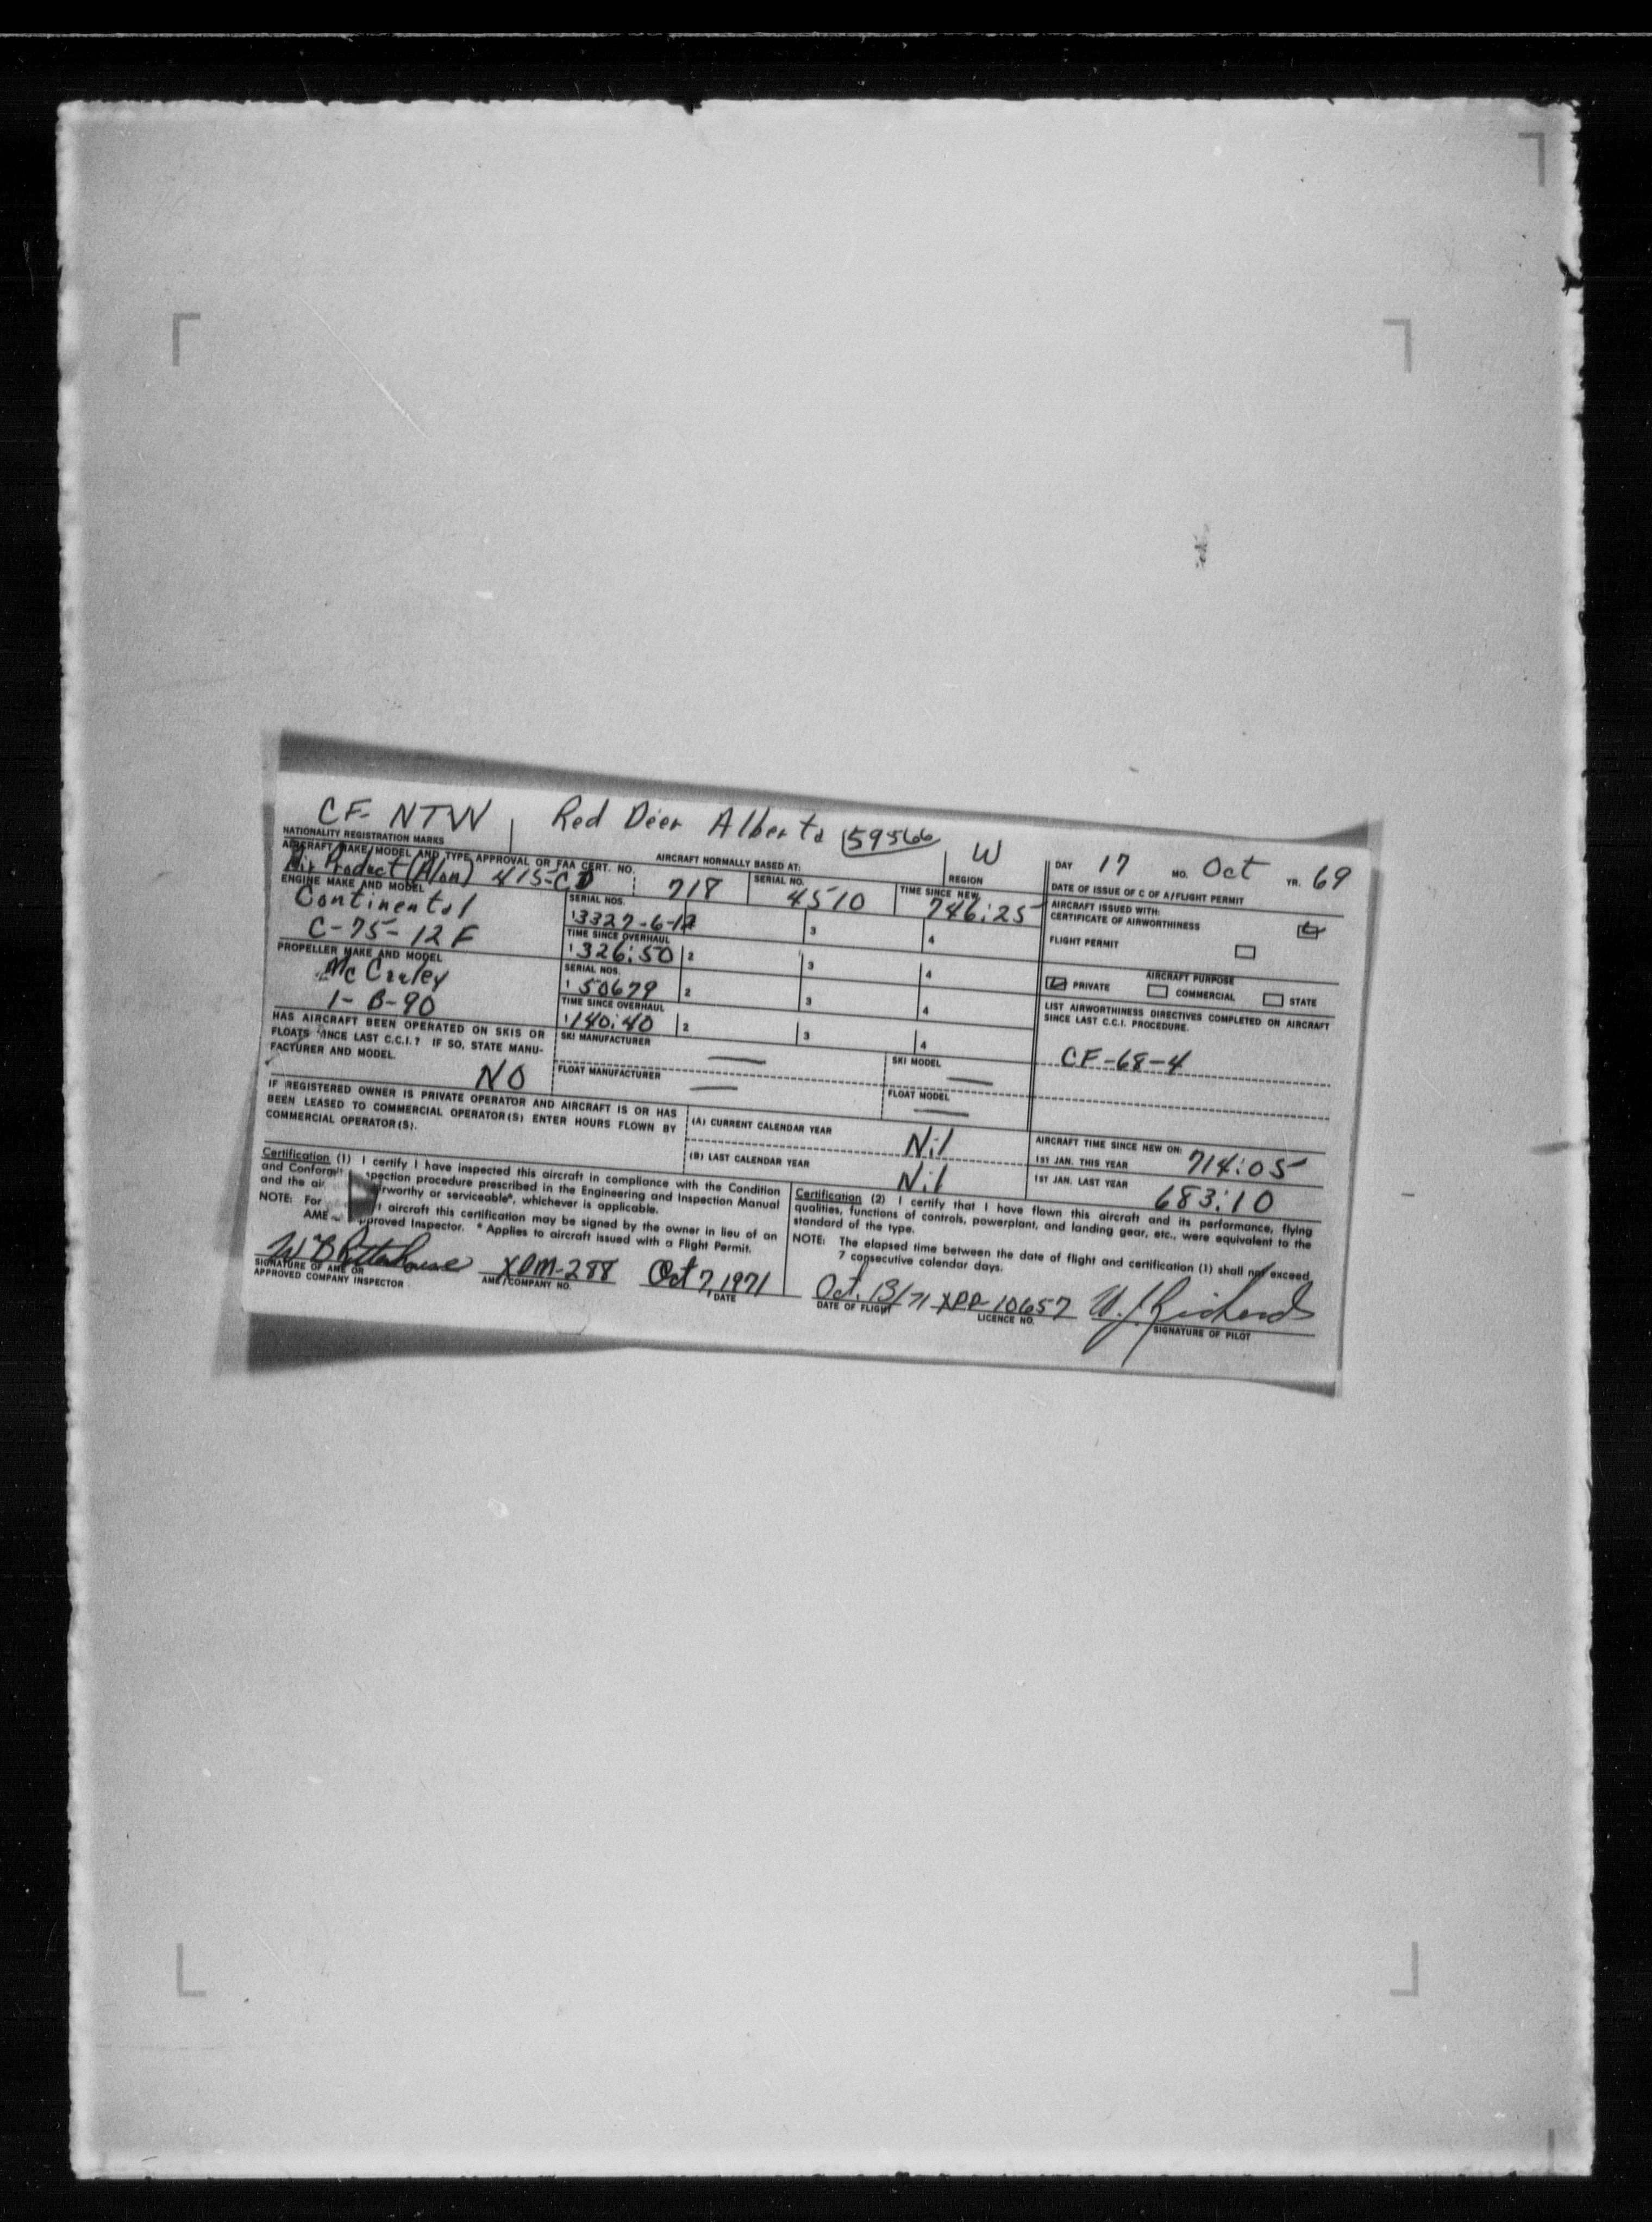 CF-NTW Red Deer Alberta 59566 W DAY 17 MO. Oct YR. 69
NATIONALITY REGISTRATION MARKS AIRCRAFT NORMALLY BASED AT: REGION DATE OF ISSUE OF C OF A/FLIGHT PERMIT
AIRCRAFT MAKE/MODEL AND TYPE APPROVAL OR FAA CERT. NO. SERIAL NO. TIME SINCE NEW
Air Product (Alon) 415-CD 718 4510 746:25
AIRCRAFT ISSUED WITH:
CERTIFICATE OF AIRWORTHINESS
FLIGHT PERMIT
ENGINE MAKE AND MODEL
Continental
C-75-12F
SERIAL NOS.
1 3327-6-12 3 4
TIME SINCE OVERHAUL
1 326:50 2 3 4
PROPELLER MAKE AND MODEL
McCauley
1-B-90
SERIAL NOS.
1 50679 2 3 4
TIME SINCE OVERHAUL
1 140:40 2 3 4
AIRCRAFT PURPOSE
PRIVATE COMMERCIAL STATE
LIST AIRWORTHINESS DIRECTIVES COMPLETED ON AIRCRAFT
SINCE LAST C.C.I. PROCEDURE.
CF-68-4
HAS AIRCRAFT BEEN OPERATED ON SKIS OR
FLOATS SINCE LAST C.C.I.? IF SO, STATE MANU-
FACTURER AND MODEL.
NO
SKI MANUFACTURER — SKI MODEL —
FLOAT MANUFACTURER — FLOAT MODEL —
IF REGISTERED OWNER IS PRIVATE OPERATOR AND AIRCRAFT IS OR HAS
BEEN LEASED TO COMMERCIAL OPERATOR(S) ENTER HOURS FLOWN BY
COMMERCIAL OPERATOR(S).
(A) CURRENT CALENDAR YEAR Nil
(B) LAST CALENDAR YEAR Nil
AIRCRAFT TIME SINCE NEW ON:
1ST JAN. THIS YEAR 714:05
1ST JAN. LAST YEAR 683:10
Certification (1) I certify I have inspected this aircraft in compliance with the Condition
and Conformit spection procedure prescribed in the Engineering and Inspection Manual
and the air rworthy or serviceable*, whichever is applicable.
NOTE: For aircraft this certification may be signed by the owner in lieu of an
AME proved Inspector. * Applies to aircraft issued with a Flight Permit.
XDM-288 Oct 7, 1971
SIGNATURE OF AME OR
APPROVED COMPANY INSPECTOR AME/COMPANY NO. DATE
Certification (2) I certify that I have flown this aircraft and its performance, flying
qualities, functions of controls, powerplant, and landing gear, etc., were equivalent to the
standard of the type.
NOTE: The elapsed time between the date of flight and certification (1) shall not exceed
7 consecutive calendar days.
Oct. 13/71 XDP-10657 W.J. Richards
DATE OF FLIGHT LICENCE NO. SIGNATURE OF PILOT